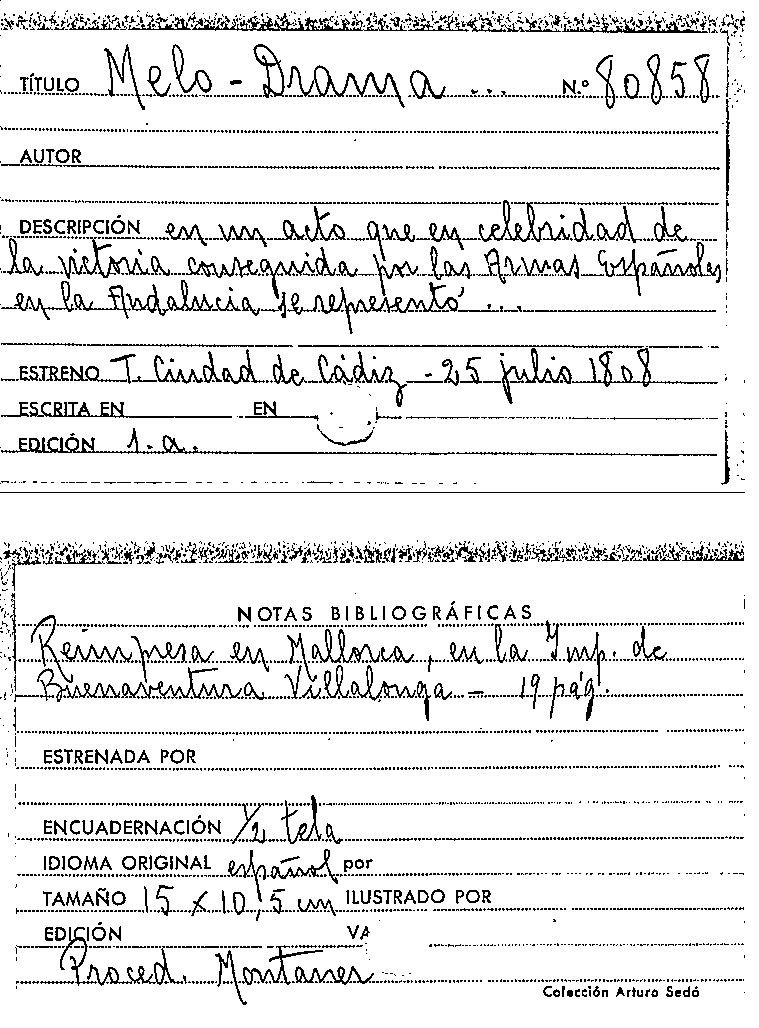 TÍTULO Melo-Drama ... N.º 80858
AUTOR
DESCRIPCIÓN en un acto que en celebridad de
la victoria conseguida por las Armas Españolas
en la Andalucia se representó ...
ESTRENO T. Ciudad de Cádiz - 25 julio 1808
ESCRITA EN EN
EDICIÓN 1.a.
NOTAS BIBLIOGRÁFICAS
Reimpresa en Mallorca, en la Imp. de
Buenaventura Villalonga - 19 pág.
ESTRENADA POR
ENCUADERNACIÓN 1/2 tela
IDIOMA ORIGINAL español por
TAMAÑO 15 x 10,5 cm ILUSTRADO POR
EDICIÓN VA
Proced. Montaner
Colección Arturo Sedó